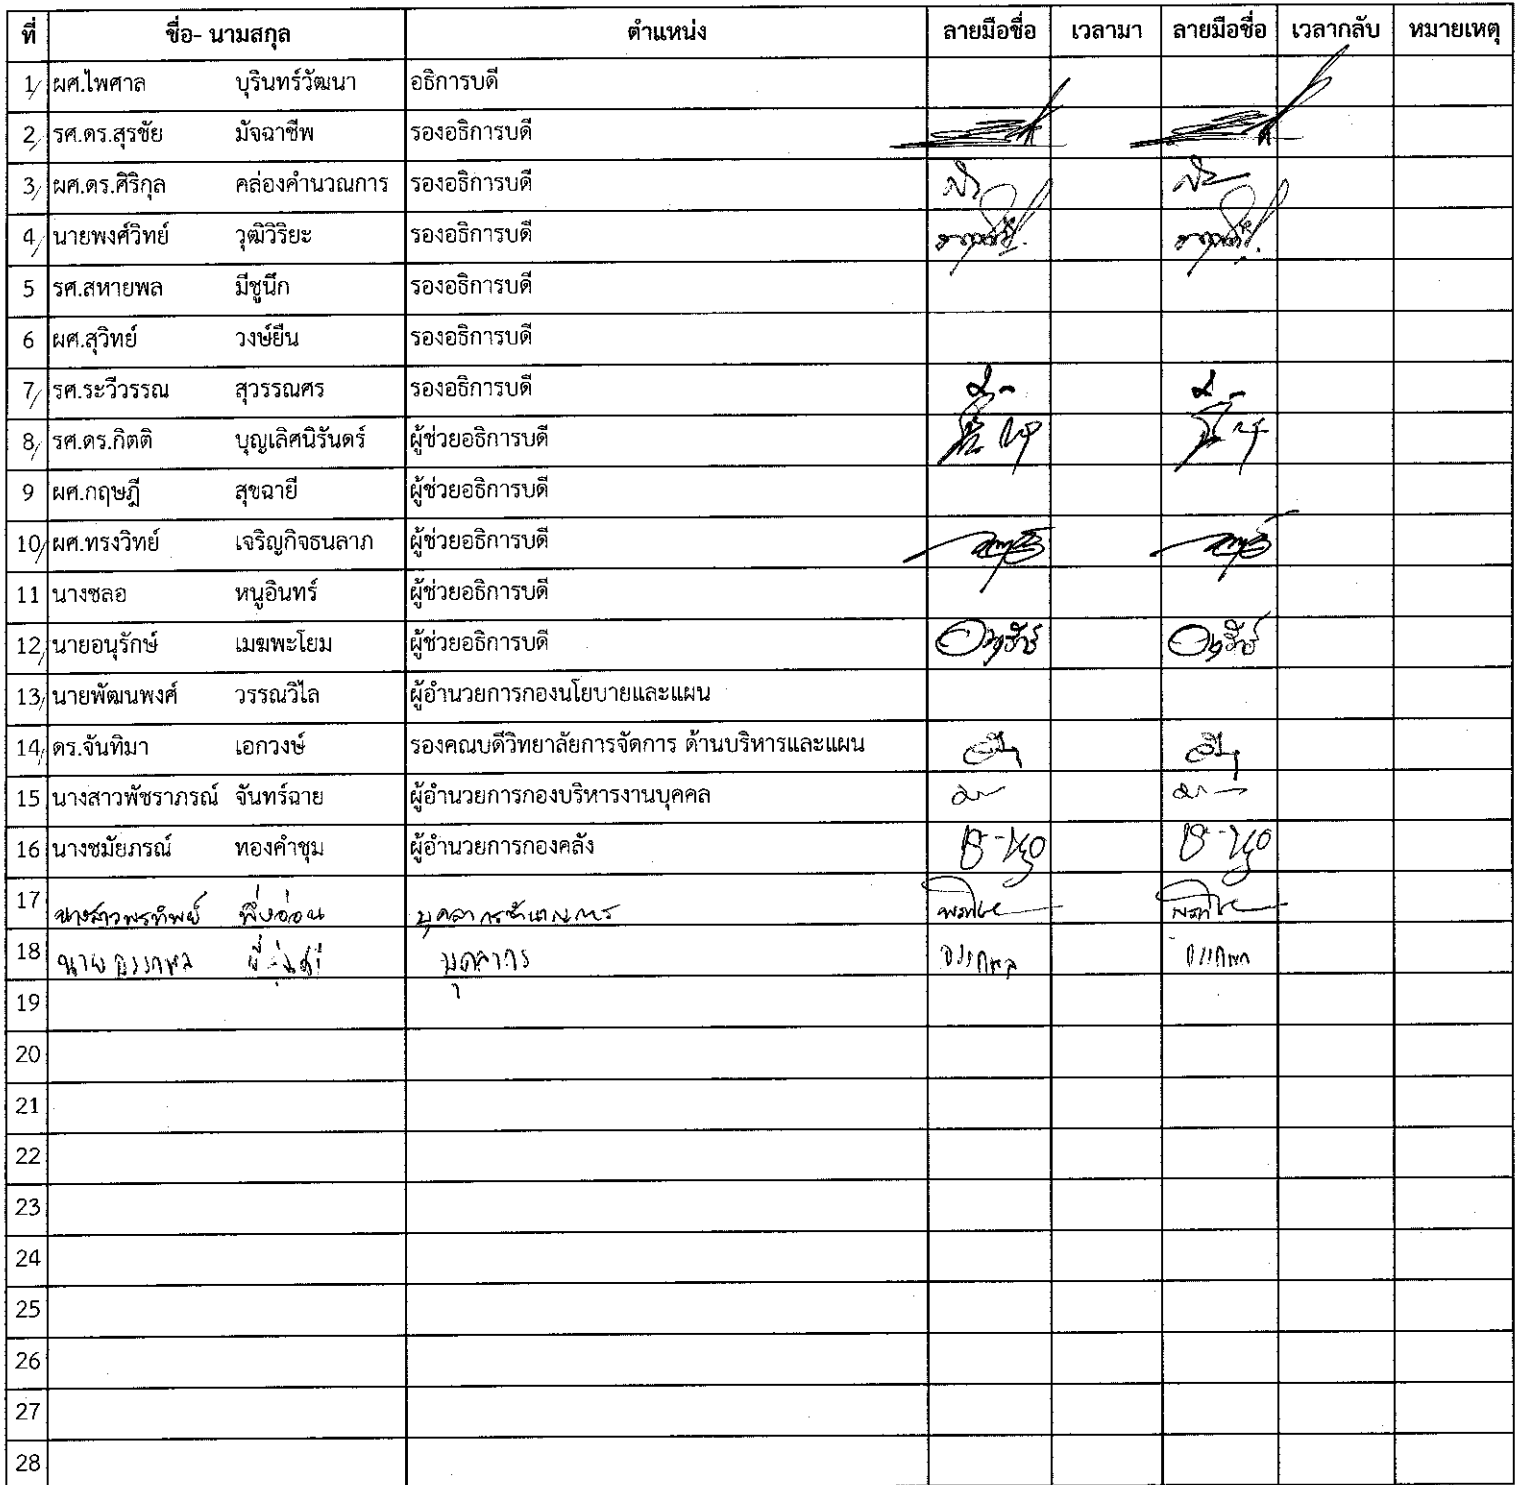 ที่ ชื่อ- นามสกุล ตำแหน่ง ลายมือชื่อ เวลามา ลายมือชื่อ เวลากลับ หมายเหตุ
1 ผศ.ไพศาล บุรินทร์วัฒนา อธิการบดี
2 รศ.ดร.สุรชัย มัจฉาชีพ รองอธิการบดี
3 ผศ.ดร.ศิริกุล คล่องคำนวณการ รองอธิการบดี
4 นายพงศ์วิทย์ วุฒิวิริยะ รองอธิการบดี
5 รศ.สหายพล มีชูนึก รองอธิการบดี
6 ผศ.สุวิทย์ วงษ์ยืน รองอธิการบดี
7 รศ.ระวีวรรณ สุวรรณศร รองอธิการบดี
8 รศ.ดร.กิตติ บุญเลิศนิรันดร์ ผู้ช่วยอธิการบดี
9 ผศ.กฤษฎี สุขฉายี ผู้ช่วยอธิการบดี
10 ผศ.ทรงวิทย์ เจริญกิจธนลาภ ผู้ช่วยอธิการบดี
11 นางชลอ หนูอินทร์ ผู้ช่วยอธิการบดี
12 นายอนุรักษ์ เมฆพะโยม ผู้ช่วยอธิการบดี
13 นายพัฒนพงศ์ วรรณวิไล ผู้อำนวยการกองนโยบายและแผน
14 ดร.จันทิมา เอกวงษ์ รองคณบดีวิทยาลัยการจัดการ ด้านบริหารและแผน
15 นางสาวพัชราภรณ์ จันทร์ฉาย ผู้อำนวยการกองบริหารงานบุคคล
16 นางชมัยภรณ์ ทองคำชุม ผู้อำนวยการกองคลัง
17 นางสาวพรทิพย์ พึ่งอ่อน บุคลากรชำนาญการ
18 นาย บุคลากร
19
20
21
22
23
24
25
26
27
28